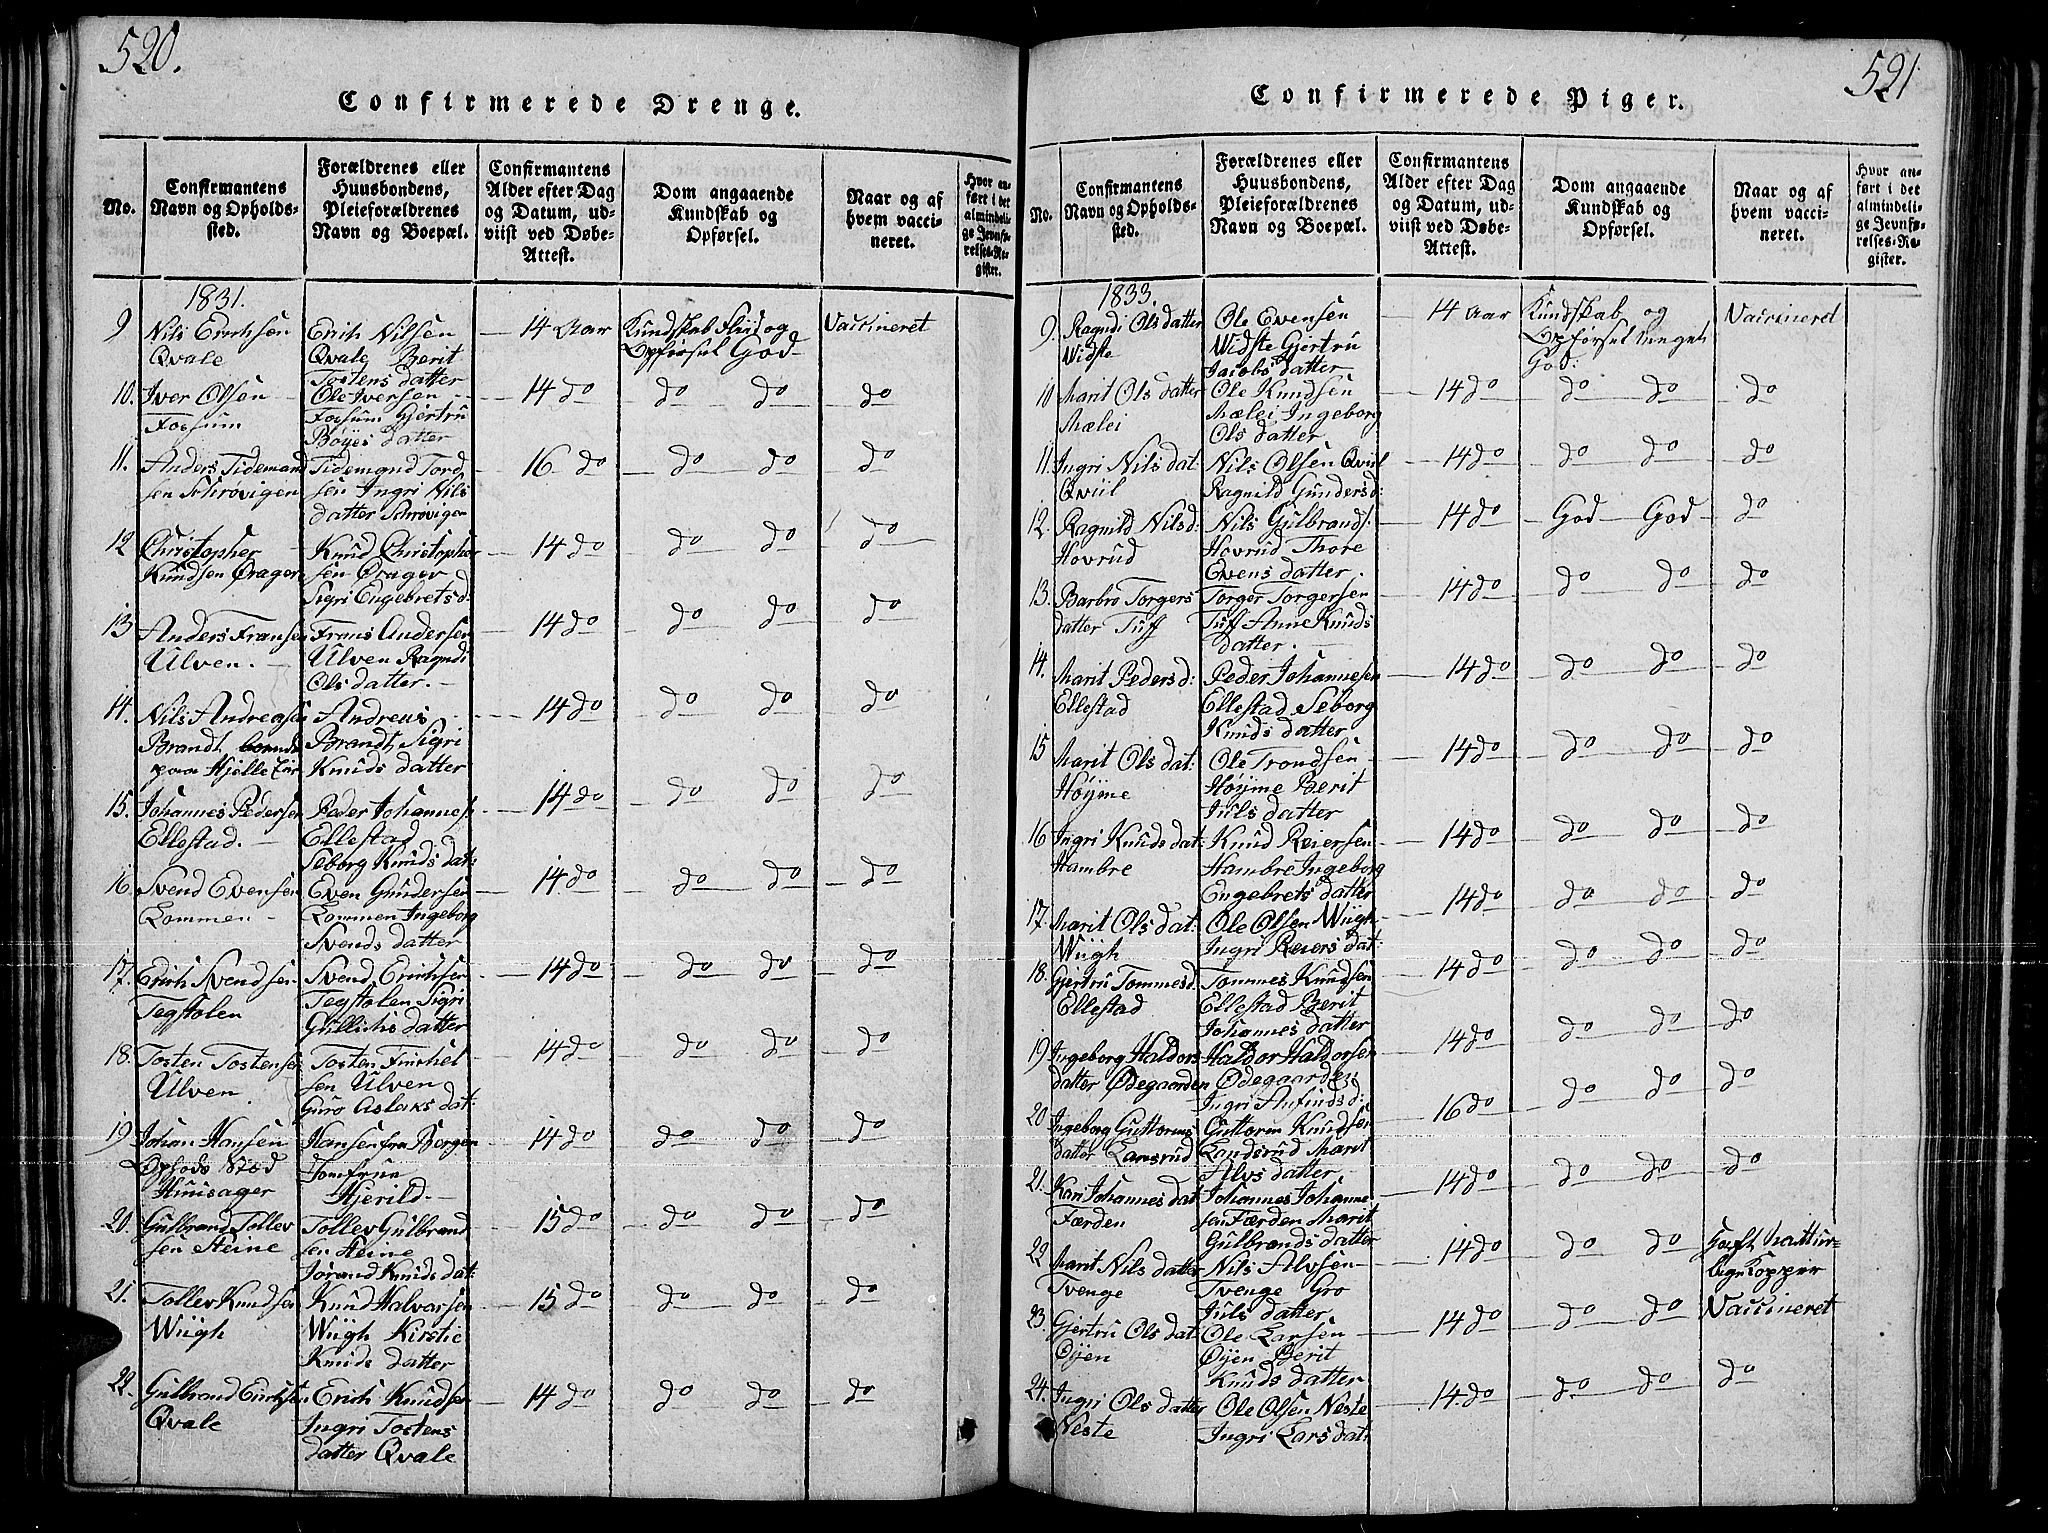 520.
Confirmerede Drenge.
No.
Confirmantens Navn og Opholdssted.
Forældrenes eller Huusbondens, Pleieforældrenes Navn og Boepæl.
Confirmantens Alder efter Dag og Datum, udviist ved Døbe-Attest.
Dom angaaende Kundskab og Opførsel.
Naar og af hvem vaccineret.
Hvor anført i det almindelige Jevnførelses-Register.
1831.
9 Nils Erichsen Erich Nilsen 14 Aar Kundskab Fliid og Vaccineret
Qvale Qvale Berit Opførsel God
Tostens datter
10. Iver Olsen Ole Iversen 14 do do do do
Fossum Fossum Gjertru
Böyes datter
11. Anders Tidemand Tidemand Tord 16 do do do do
sen Schrövigen sen Ingri Nils
datter Schrövigen
12 Christopher Knud Christopher 14 do do do do
Knudsen Ørager sen Ørager
Sigri Engebretsd
13 Anders Fransen Frans Andersen 14 do do do do
Ulven. Ulven Ragndi
Ols datter.
14. Nils Andreasen Andreas 14 do do do do
Brandt Brandt Sigri
paa Hjelle Knuds datter
15. Johannes Pedersen Peder Johannes 14 do do do do
Ellestad. Ellestad
Seborg Knuds dat:
16. Svend Evensen Even Gundersen 14 do do do do
Lommen Lommen Ingeborg
Svends datter
17. Erich Svendsen Svend Erichsen 14 do do do do
Tegstolen Tegstolen Sigri
Gullichs datter
18. Tosten Tostensen Tosten Finchel 14 do do do do
Ulven sen Ulven
Guro Aslaks dat:
19 Johan Hansen Hansen fra Bergen 14 do do do do
Ophods Stæd Jomfrue
Huusager Hjerild
20. Gulbrand Tollev Tollev Gulbrand 15 do do do do
sen Steine sen Steine
Jorand Knuds dat:
21. Tollev Knudsen Knud Halvarsen 15 do do do do
Wiigh Wiigh Kirstie
Knuds datter
22. Gulbrand Erichsen Erich Knudsen 14 do do do do
Qvale Ingri Tostens
datter Qvale
521
Confirmerede Piger.
No.
Confirmantens Navn og Opholdssted.
Forældrenes eller Huusbondens, Pleieforældrenes Navn og Boepæl.
Confirmantens Alder efter Dag og Datum, udviist ved Døbe-Attest.
Dom angaaende Kundskab og Opførsel.
Naar og af hvem vaccineret.
Hvor anført i det almindelige Jevnførelses-Register.
1833.
9. Ragndi Ols datter Ole Evensen 14 Aar Kundskab og Vaccineret
Widste Widste Gjertru Opførsel meget
Jacobs datter God.
10 Marit Ols datter Ole Knudsen 14 do do do do
Mælei Mælei Ingeborg
Ols datter
11. Ingri Nils dat Nils Olsen Qviil 14 do do do do
Qviil Ragnild Gundersd:
12. Ragnild Nilsd: Nils Gulbrands. 14 do God God do
Hovrud Hovrud Thore
Evens datter.
13. Barbro Torgers Torger Torgersen 14 do do do do
datter Tuff Tuff Anne Knuds
datter.
14. Marit Peders d: Peder Johannesen 14 do do do do
Ellestad Ellestad Seborg
Knuds datter
15 Marit Ols dat: Ole Trondsen 14 do do do do
Høyme Høyme Berit
Juls datter
16 Ingri Knuds dat: Knud Reiersen 14 do do do do
Hambre Hambre Ingeborg
Engebrets datter
17. Marit Ols dat: Ole Olsen Wiigh 14 do do do do
Wiigh Ingri Reiers dat:
18. Gjertru Tommesd. Tommes Knudsen 14 do do do do
Ellestad Ellestad Berit
Johannes datter
19 Ingeborg Haldors Haldor Haldorsen 14 do do do do
datter Ødegaarden Ødegaarden
Ingri Anfindsd:
20. Ingeborg Guttorms Guttorm Knudsen 16 do do do do
datter Lansrud Landsrud Marit
Alvs datter
21. Kari Johannes dat Johannes Johanne 14 do do do do
Færden sen Færden Marit
Gulbrands datter
22 Marit Nils datter Nils Alvsen 14 do do do Haft Nattur-
Tvenge Tvenge Gro lige Kopper
Juls datter
23. Gjertru Ols dat: Ole Larsen 14 do do do Vaccineret
Øyen Øyen Berit
Knuds datter
24. Ingri Ols datter Ole Olsen Neste 14 do do do do
Neste Ingri Lars dat: